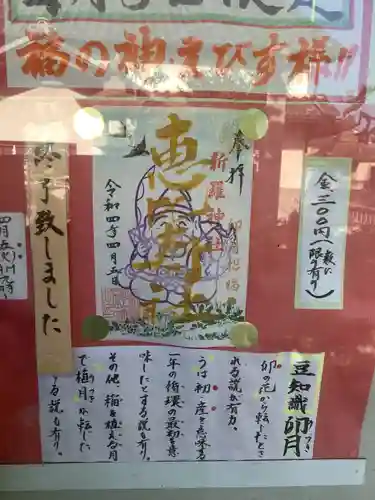 福の神えびす様!!
奉拝
新羅神社
卯月招福
恵比寿社
令和四年四月五日
金三〇〇円(数に限り有り)
終了致しました
四月五(火)
豆知識 卯月
うづき
卯の花から転じたとさ
れる説が有力。
うは初・産を意味する
一年の循環の最初を意
味したとする説も有り。
その他、稲を植える月
で植月が転じた
とする説も有り。